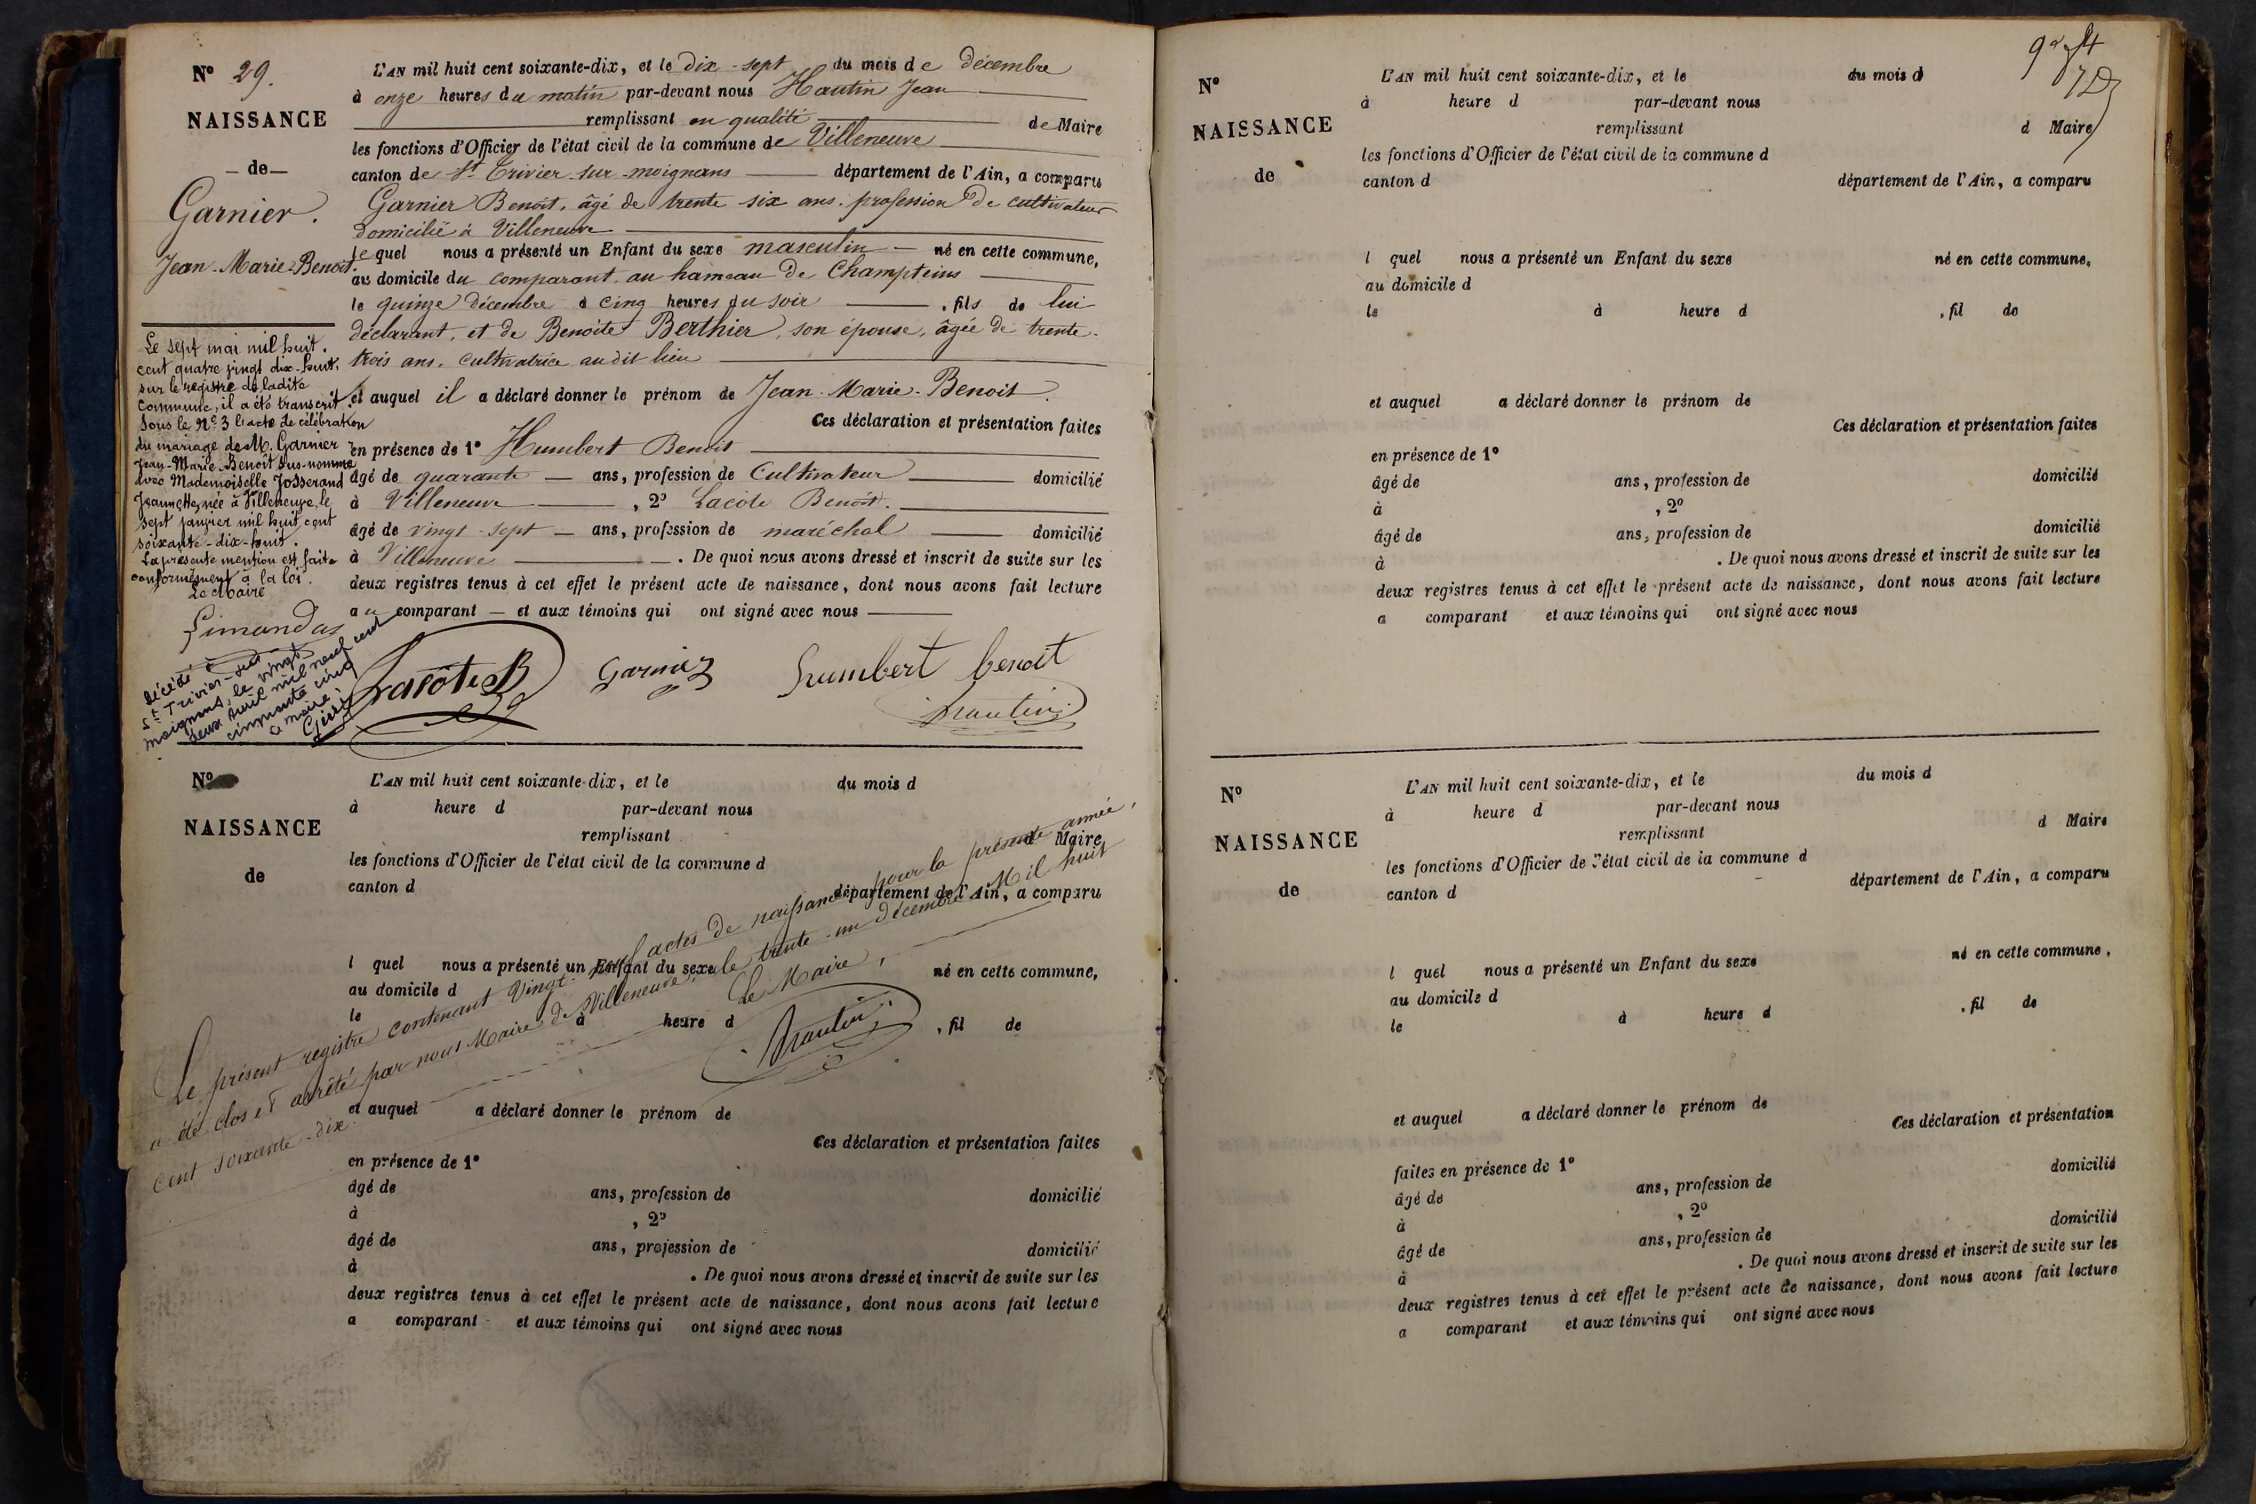 Nº 29.
NAISSANCE
— de —
Garnier.
Jean-Marie-Benoit.
L'AN mil huit cent soixante-dix, et le dix-sept du mois de décembre
à onze heures du matin par-devant nous Hautin Jean
remplissant en qualité de Maire
les fonctions d'Officier de l'état civil de la commune de Villeneuve
canton de St Trivier-sur-moignans département de l'Ain, a comparu
Garnier Benoit, âgé de trente six ans. profession de cultivateur
domicilié à Villeneuve
le quel nous a présenté un Enfant du sexe masculin né en cette commune,
au domicile du comparant au hameau de Champteins
le quinze décembre à cinq heures du soir, fils de lui
déclarant, et de Benoite Berthier, son épouse, âgée de trente-
trois ans. cultivatrice au dit lieu
et auquel il a déclaré donner le prénom de Jean-Marie-Benoit.
Ces déclaration et présentation faites
en présence de 1º Humbert Benoit
âgé de quarante ans, profession de Cultivateur domicilié
à Villeneuve, 2º Lacôte Benoit.
âgé de vingt-sept ans, profession de maréchal domicilié
à Villeneuve. De quoi nous avons dressé et inscrit de suite sur les
deux registres tenus à cet effet le présent acte de naissance, dont nous avons fait lecture
au comparant et aux témoins qui ont signé avec nous
Lacôte B Garnier humbert benoit
hautin
Le sept mai mil huit
cent quatre vingt dix-huit,
sur le registre de ladite
commune, il a été transcrit
sous le Nº 3 l'acte de célébration
du mariage de M. Garnier
Jean-Marie-Benoit sus-nommé
avec Mademoiselle Josserand
Jeannette, née à Villeneuve, le
sept janvier mil huit cent
soixante-dix-huit.
La présente mention est faite
conformément à la loi.
Le Maire
Limandas
décédé à
St Trivier-sur
moignans, le vingt
deux avril mil neuf cent
cinquante cinq
Le maire,
Nº
NAISSANCE
de
L'AN mil huit cent soixante-dix, et le du mois d
à heure d par-devant nous
remplissant d Maire
les fonctions d'Officier de l'état civil de la commune d
canton d département de l'Ain, a comparu
l quel nous a présenté un Enfant du sexe né en cette commune,
au domicile d
le à heure d , fil de
et auquel a déclaré donner le prénom de
Ces déclaration et présentation faites
en présence de 1º
âgé de ans, profession de domicilié
à , 2º
âgé de ans, profession de domicilié
à . De quoi nous avons dressé et inscrit de suite sur les
deux registres tenus à cet effet le présent acte de naissance, dont nous avons fait lecture
a comparant et aux témoins qui ont signé avec nous
Le présent registre contenant Vingt-neuf actes de naissance pour la présente année,
a été clos et arrêté par nous Maire de Villeneuve, le trente-un décembre Mil huit
cent soixante-dix.
Le Maire,
hautin
Nº
NAISSANCE
de
L'AN mil huit cent soixante-dix, et le du mois d
à heure d par-devant nous
remplissant d Maire
les fonctions d'Officier de l'état civil de la commune d
canton d département de l'Ain, a comparu
l quel nous a présenté un Enfant du sexe né en cette commune,
au domicile d
le à heure d , fil de
et auquel a déclaré donner le prénom de
Ces déclaration et présentation faites
en présence de 1º
âgé de ans, profession de domicilié
à , 2º
âgé de ans, profession de domicilié
à . De quoi nous avons dressé et inscrit de suite sur les
deux registres tenus à cet effet le présent acte de naissance, dont nous avons fait lecture
a comparant et aux témoins qui ont signé avec nous
Nº
NAISSANCE
de
L'AN mil huit cent soixante-dix, et le du mois d
à heure d par-devant nous
remplissant d Maire
les fonctions d'Officier de l'état civil de la commune d
canton d département de l'Ain, a comparu
l quel nous a présenté un Enfant du sexe né en cette commune,
au domicile d
le à heure d , fil de
et auquel a déclaré donner le prénom de
Ces déclaration et présentation
faites en présence de 1º
âgé de ans, profession de domicilié
à , 2º
âgé de ans, profession de domicilié
à . De quoi nous avons dressé et inscrit de suite sur les
deux registres tenus à cet effet le présent acte de naissance, dont nous avons fait lecture
a comparant et aux témoins qui ont signé avec nous